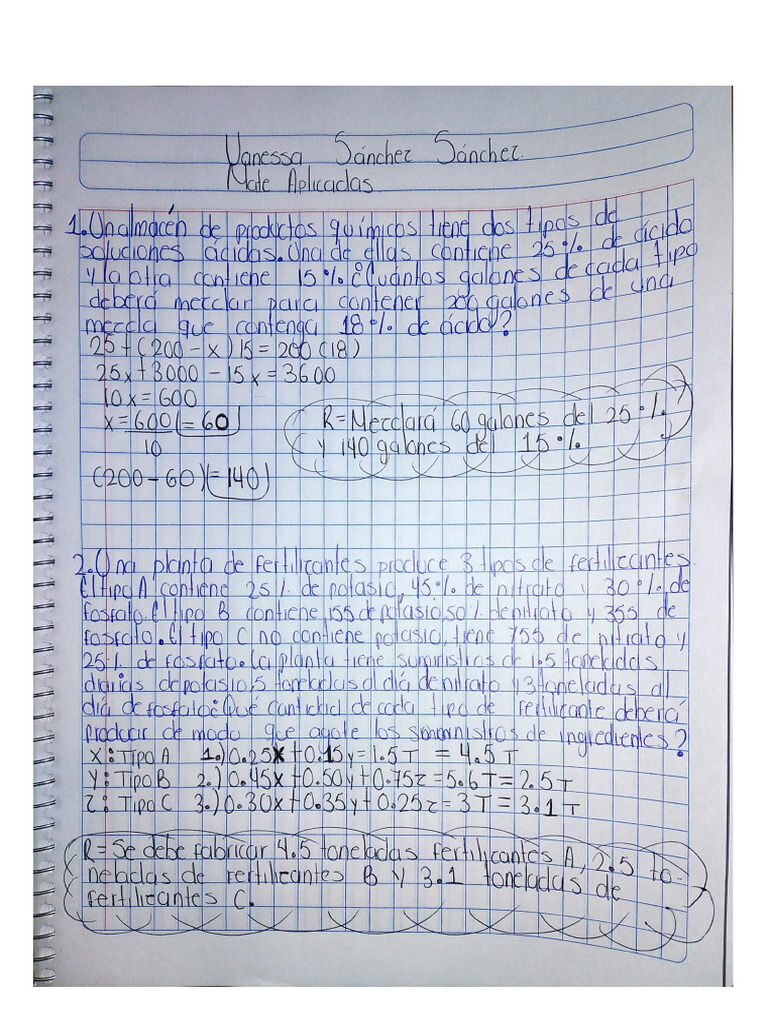 Vanessa Sánchez Sánchez.
Mate Aplicadas
1. Un almacén de productos químicos tiene dos tipos de
soluciones ácidas. Una de ellas contiene 25% de ácido
y la otra contiene 15% ¿Cuántos galones de cada tipo
deberá mezclar para contener 200 galones de una
mezcla que contenga 18% de ácido?
25+(200-x)15=200(18)
25x+3000-15x=3600
10x=600
x=600(=60)
10
(200-60)(=140)
R=Mezclará 60 galones del 25%
y 140 galones del 15%
2. Una planta de fertilizantes produce 3 tipos de fertilizantes
El tipo A contiene 25% de potasio, 45% de nitrato y 30% de
fosfato. El tipo B contiene 155 de potasio, 50% de nitrato y 355 de
fosfato. El tipo C no contiene potasio, tiene 755 de nitrato y
25% de fosfato. La planta tiene suministros de 1.5 toneladas
diarias de potasio, 5 toneladas al día de nitrato y 3 toneladas al
día de fosfato ¿Qué cantidad de cada tipo de fertilizante deberá
producir de modo que agote los suministros de ingredientes?
X: Tipo A 1.) 0.25x+0.15y=1.5T = 4.5T
Y: Tipo B 2.) 0.45x+0.50y+0.75z=5.6T=2.5T
Z: Tipo C 3.) 0.30x+0.35y+0.25z=3T=3.1T
R= Se debe fabricar 4.5 toneladas fertilizantes A, 2.5 to-
neladas de fertilizantes B y 3.1 toneladas de
fertilizantes C.